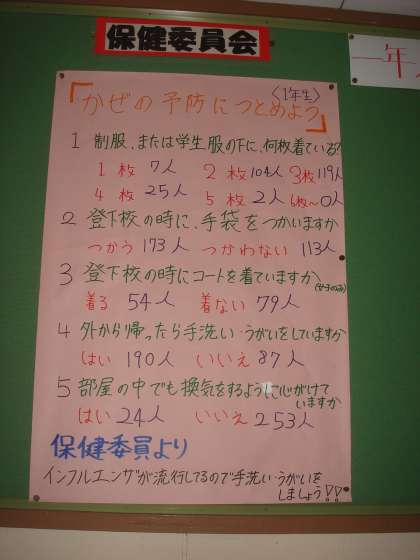 保健委員会
一年
〈1年生〉
「かぜの予防につとめよう」
1 制服、または学生服の下に、何枚着ている?
1枚 7人 2枚 104人 3枚 119人
4枚 25人 5枚 2人 6枚〜0人
2 登下校の時に、手袋をつかいますか
つかう 173人 つかわない 113人
3 登下校の時にコートを着ていますか
(女子のみ)
着る 54人 着ない 79人
4 外から帰ったら手洗い・うがいをしていますか
はい 190人 いいえ 87人
5 部屋の中でも換気をするように心がけて
いますか
はい 24人 いいえ 253人
保健委員より
インフルエンザが流行してるので手洗い・うがいを
しましょう!!